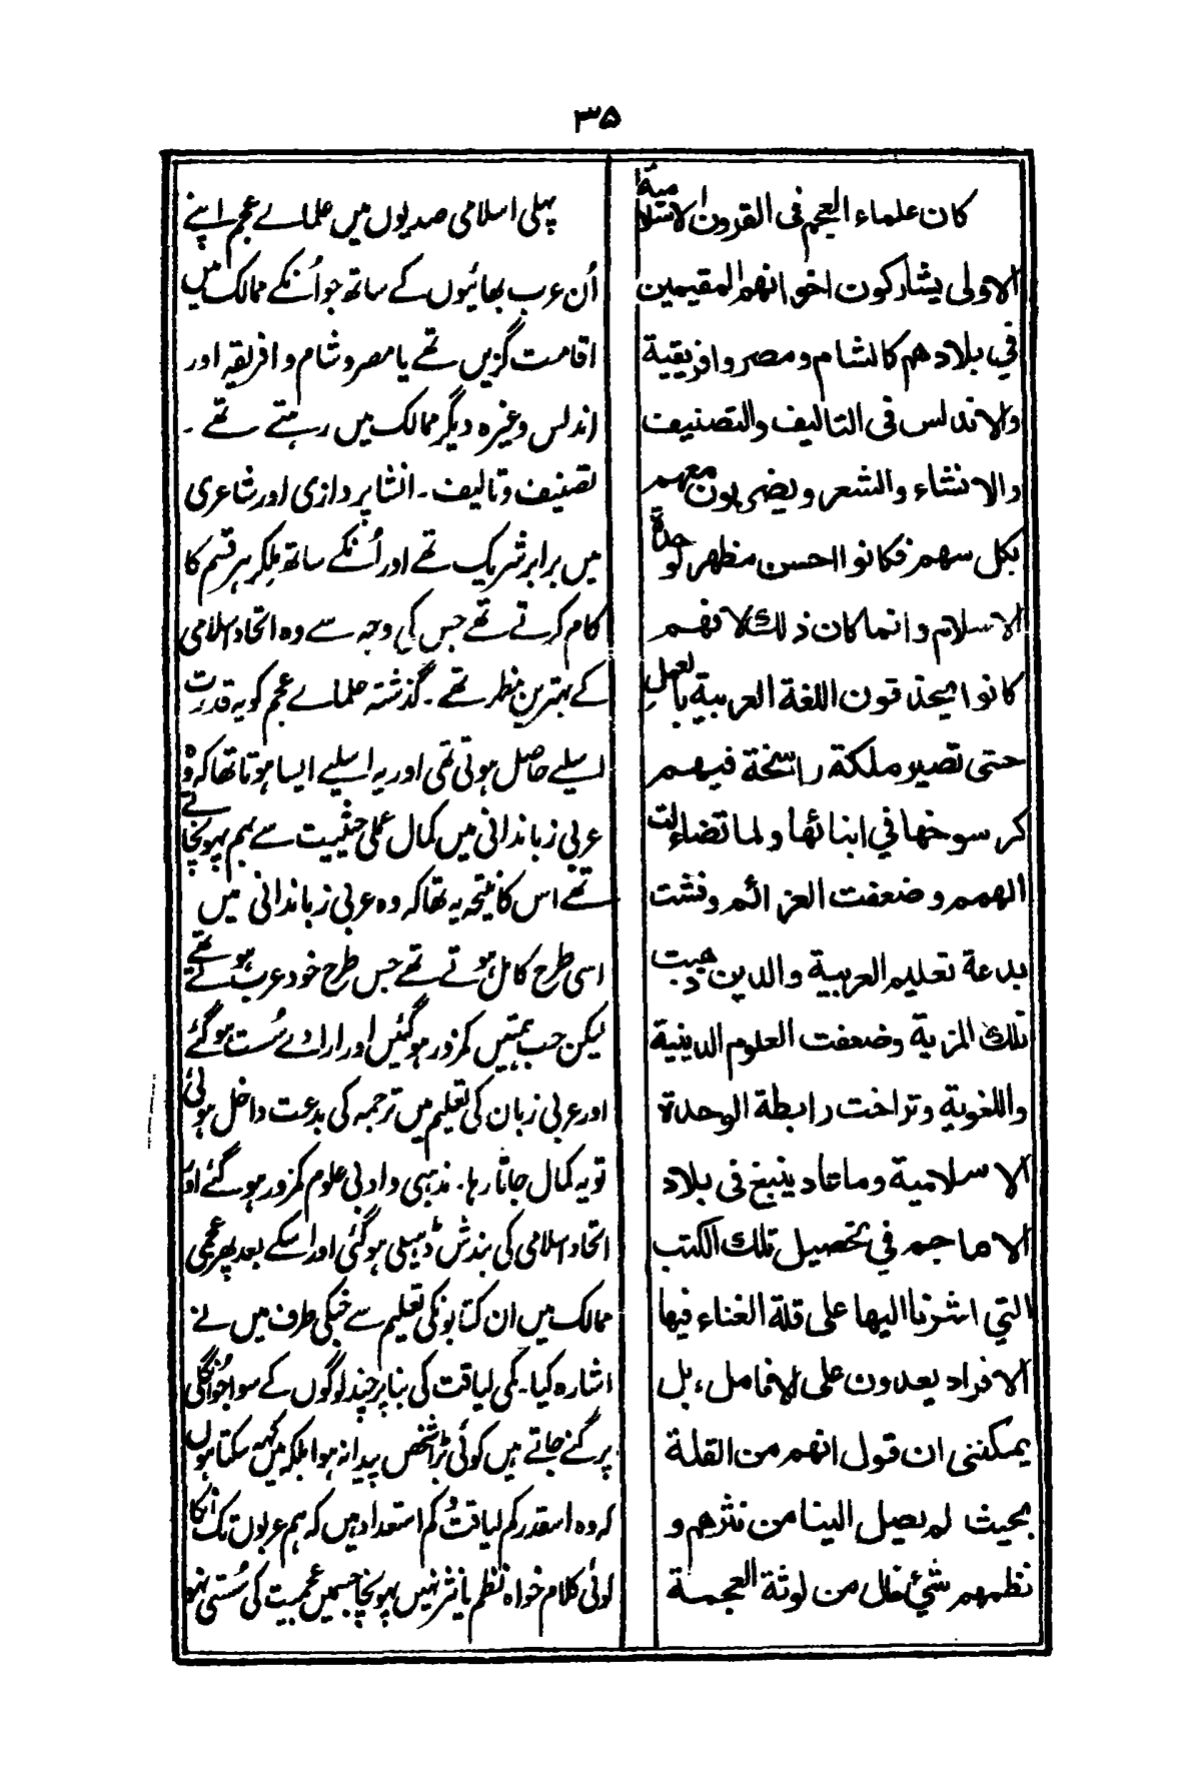 ۳۵
كان علماء العجم فى القرون الاسلامية
الاولى يشاركون اخوانهم المقيمين
في بلادهم كالشام ومصر وافريقية
والاندلس فى التاليف والتصنيف
والانشاء والشعر ويضربون معهم
بكل سهم فكانوا احسن مظهر لوحدة
الاسلام وانما كان ذلك لانهم
كانوا يحذقون اللغة العربية بالعمل
حتى تصير ملكة راسخة فيهم
كرسوخها في ابنائها ولما تضاءلت
الهمم وضعفت العزائم وفشت
بدعة تعليم العربية والدين ذهبت
تلك المزية وضعفت العلوم الدينية
واللغوية وتراخت رابطة الوحدة
الاسلامية وما عاد ينبغ فى بلاد
الاعاجم في تحصيل تلك الكتب
التي اشرنا اليها على قلة الغناء فيها
الافراد يعدون على الانامل، بل
يمكننى ان قول انهم من القلة
بحيث لم يصل الينا من نثرهم و
نظمهم شيئ خال من لوثة العجمة
پہلی اسلامی صدیوں میں علماے عجم اپنے
اُن عرب بھائیوں کے ساتھ جو اُنکے ممالک میں
اقامت گزیں تھے یا مصر و شام و افریقہ اور
اندلس وغیرہ دیگر ممالک میں رہتے تھے ۔
تصنیف و تالیف ۔ انشا پردازی اور شاعری
میں برابر شریک تھے اور اُنکے ساتھ ملکر ہر قسم کا
کام کرتے تھے جس کی وجہ سے وہ اتحاد اسلامی
کے بہترین مظہر تھے ۔ گذشتہ علماے عجم کو یہ قدرت
اسلیے حاصل ہوتی تھی اور یہ اسلیے ایسا ہوتا تھا کہ وہ
عربی زباندانی میں کمال عملی حیثیت سے بہم پہونچاتے
تھے اس کا نتیجہ یہ تھا کہ وہ عربی زباندانی میں
اسی طرح کامل ہوتے تھے جس طرح خود عرب ہوتے تھے
لیکن جب ہمتیں کمزور ہوگئیں اور ارادے سُست ہوگئے
اور عربی زبان کی تعلیم میں ترجمہ کی بدعت داخل ہوئی
تو یہ کمال جاتا رہا ۔ مذہبی و ادبی علوم کمزور ہوگئے اور
اتحاد اسلامی کی بندش ڈہیلی ہوگئی اور اسکے بعد پھر عجمی
ممالک میں ان کتابونکی تعلیم سے جنکی طرف میں نے
اشارہ کیا ۔ کمی لیاقت کی بنا پر چند لوگوں کے سوا جو اُنگلی
پر گنے جاتے ہیں کوئی بڑا شخص پیدا نہ ہوا بلکہ میں کہہ سکتا ہوں
کہ وہ اسقدر کم لیاقت و کم استعداد ہیں کہ ہم عربوں تک اُنکا
کوئی کلام خواہ نظم یا نثر نہیں پہونچا جسمیں عجمیت کی سُستی نہو